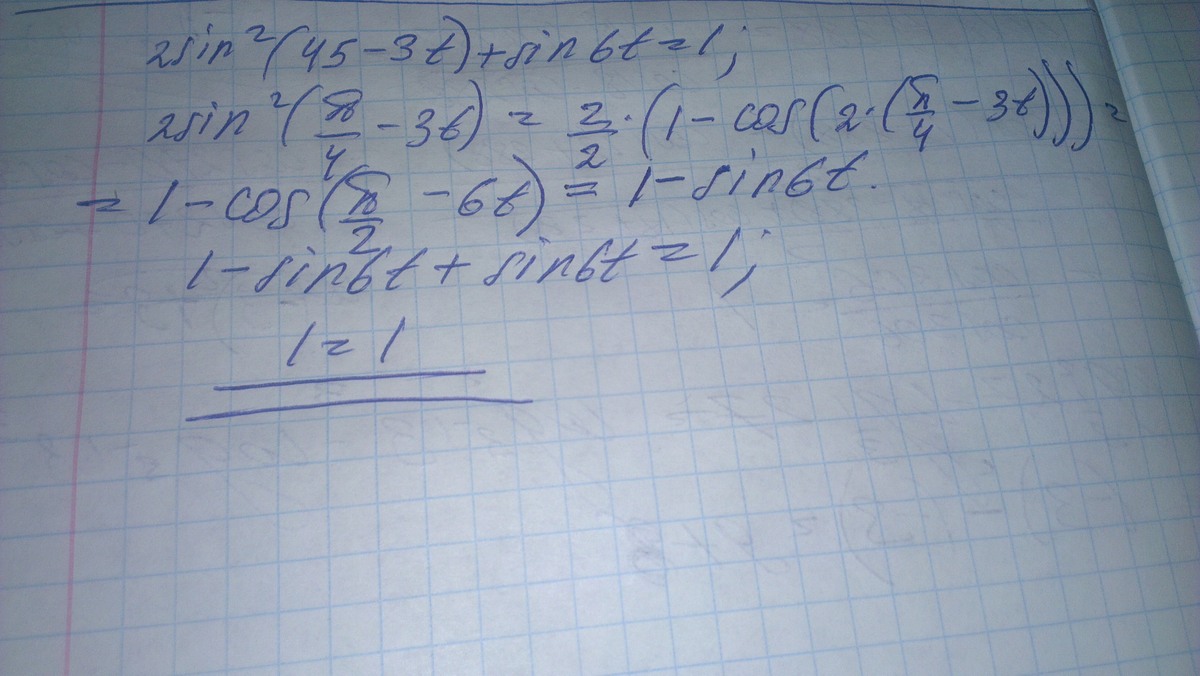 2sin²(45-3t)+sin6t=1;
2sin²(π/4-3t) = 2/2·(1-cos(2·(π/4-3t)))=
=1-cos(π/2-6t)=1-sin6t.
1-sin6t+sin6t=1;
1=1